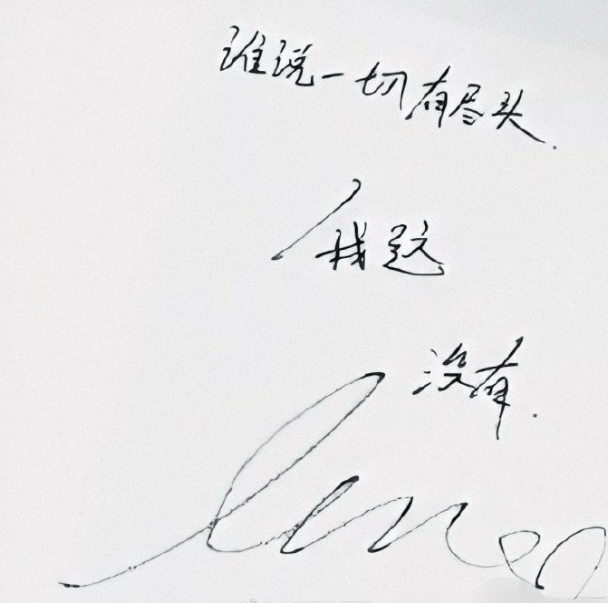 谁说一切有尽头.
我这
没有.